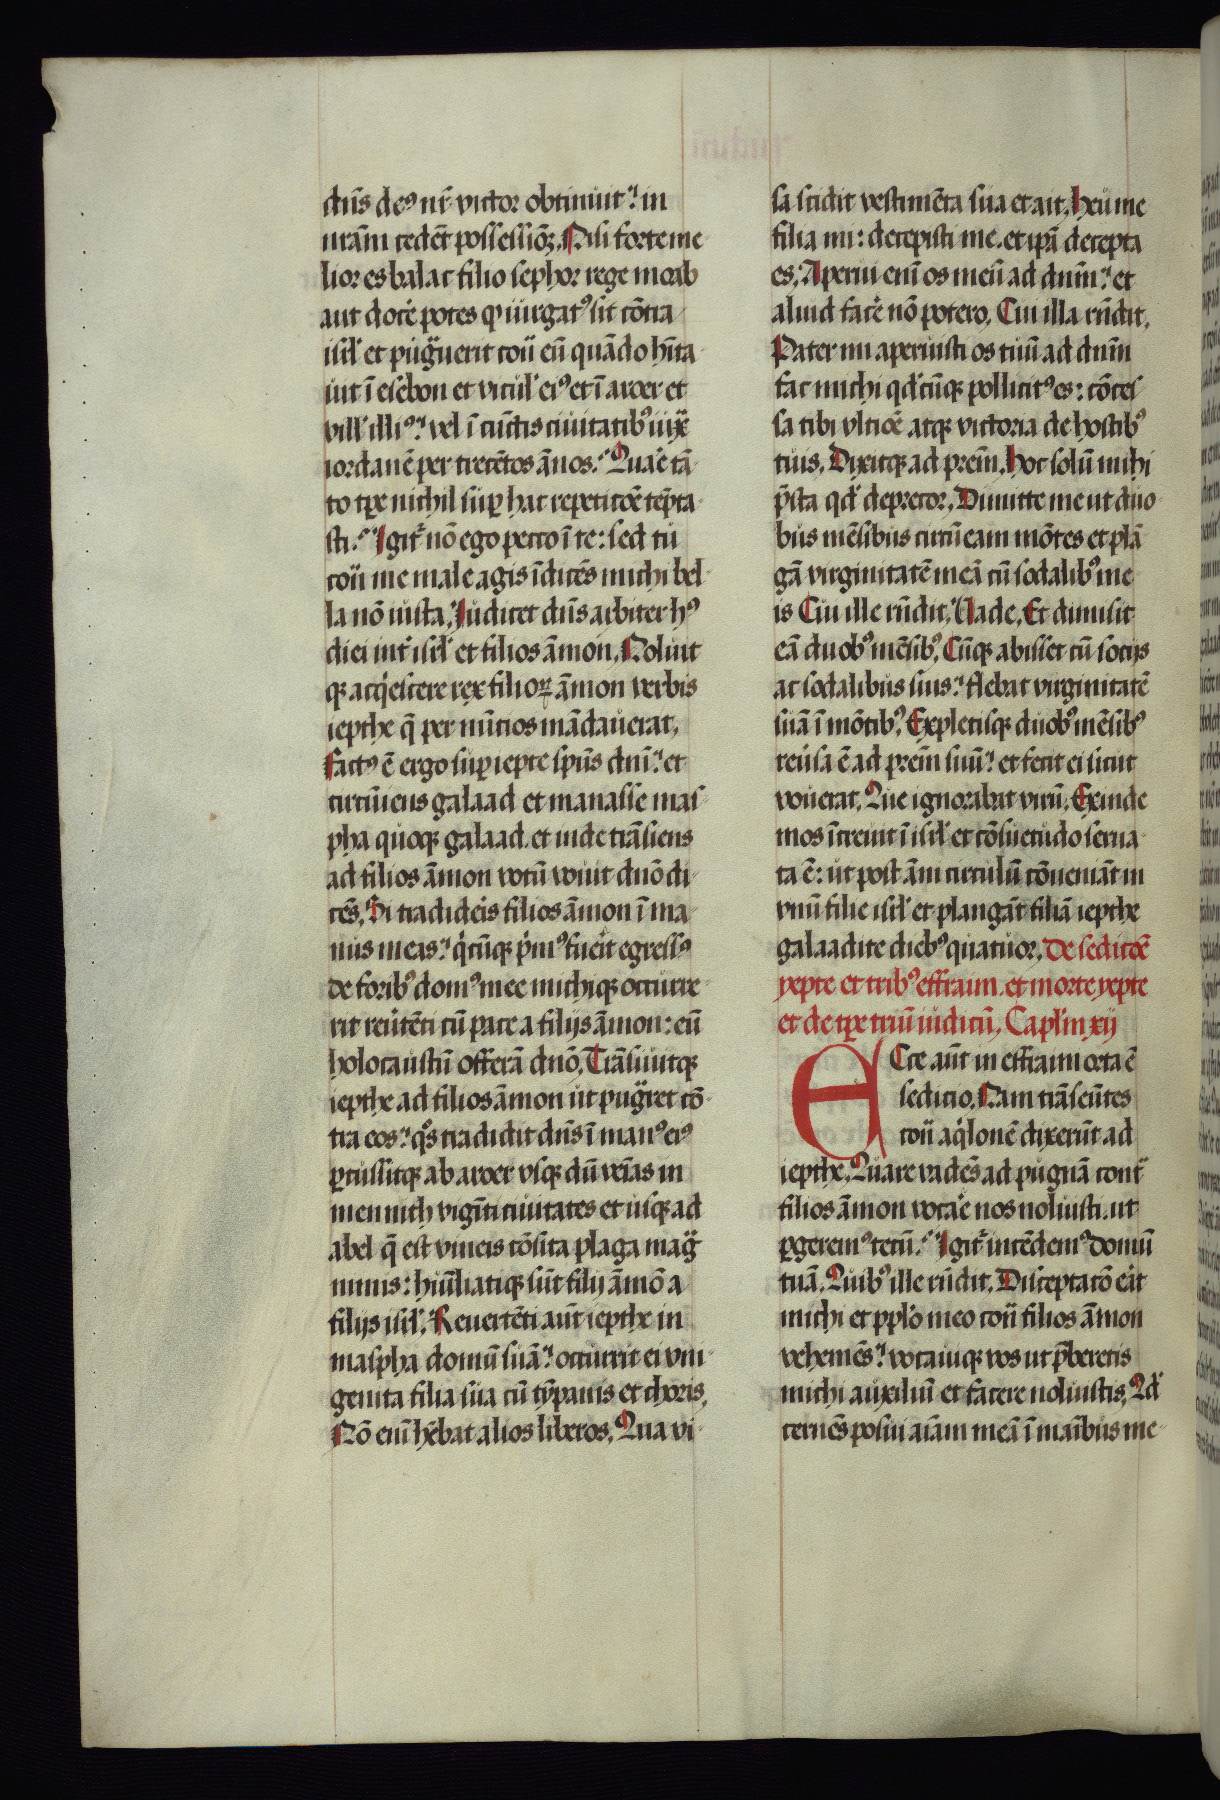 dn̄s deꝰ nr̄ victor obtinuit? in
nr̄am cedēt possessiōꝫ. Nisi forte me
lior es balac filio sephor rege moab
aut docē potes ꝙ iurgatꝰ sit cōtra
isrl̓ et pugn̄uerit cōtͣ eū quādo hīta
uit ī esebon et vicul̓ eiꝰ et ī aroer et
vill̓ illiꝰ? vel ī cūctis ciuitatibꝰ iuxͣ
iordanē per trecētos ānos? Quaē tā
to tꝑe nichil suꝑ hac repeticōe tēpta
sti? Igit̄ nō ego pecco ī te: sed tu
cōtͣ me male agis īdicēs michi bel
la nō iusta. Iudicet dn̄s arbiter hꝰ
diei int̄ isrl̓ et filios āmon. Noluit
qꝫ acq̓escere rex filioꝝ āmon verbis
iepthe q̄ per nūcios mādauerat.
Factꝰ ē ergo suꝑ iepte sp̄us dn̄i? et
circūiens galaad et manasse mas
pha quoqꝫ galaad. et inde trāsiens
ad filios āmon votū vouit dn̄o di
cēs. Si tradideīs filios āmon ī ma
nus meas? q̓cūqꝫ p̓mꝰ fueīt egressꝰ
de foribꝰ domꝰ mee michiqꝫ occurre
rit reūtēti cū pace a filijs āmon: eū
holocaustū offerā dn̄o. Trāsiuitqꝫ
iepthe ad filios āmon ut pugͣret cō
tra eos? q̊s tradidit dn̄s ī manꝰ eiꝰ
ꝑcussitqꝫ ab aroer vsqꝫ dū veīas in
mennith vigīti ciuitates et usqꝫ ad
abel q̄ est vineis cōsita plaga magͣ
nimis: hūiliatiqꝫ sūt filij āmō a
filijs isrl̓. Reuertēti aūt iepthe in
maspha domū suā? occurrit ei vni
genita filia sua cū tȳpanis et choris.
Nō enī hēbat alios liberos. Qua vi
sa scidit vestimēta sua et ait. heu me
filia mi: decepisti me. et ip̄a decepta
es. Aperui enī os meū ad dn̄m? et
aliud facē nō potero. Cui illa rn̄dit.
Pater mi aperuisti os tuū ad dn̄m
fac michi qd̓cūqꝫ pollicitꝰ es: cōces
sa tibi vltiōe atqꝫ victoria de hostibꝰ
tuis. Dixitqꝫ ad pr̄em. hoc solū michi
p̄sta qd̓ deprecor. Dimitte me ut duo
bus mēsibus circūeam mōtes et plā
gā virginitatē meā cū sodalibꝰ me
is Cui ille rn̄dit. Uade. Et dimisit
eā duobꝰ mēsibꝰ. Cūqꝫ abisset cū socijs
ac sodalibus suis? flebat virginitatē
suā ī mōtibꝰ. Expletisqꝫ duobꝰ mēsibꝰ
reūsa ē ad pr̄em suū? et fecit ei sicut
vouerat. Que ignorabat virū. Exinde
mos īcreuit ī isrl̓ et cōsuetudo serua
ta ē: ut post ān̄i circulū cōueniāt in
vnū filie isrl̓ et plangāt filiā iepthe
galaadite diebꝰ quatuor. De sedicōe
yepte et tribꝰ effraim. et morte yepte
et de tꝑe triū iudicū. Capl̓m xij
ECce aūt in effraim orta ē
sedicio. Nam trāseūtes
cōtͣ aq̓lonē dixerūt ad
iepthe. Quare vadēs ad pugnā contͣ
filios āmon vocaē nos noluisti. ut
ꝑgeremꝰ tecū? Igit̄ incēdemꝰ domū
tuā. Quibꝰ ille rn̄dit. Disceptacō eīt
michi et ppl̓o meo cōtͣ filios āmon
vehemēs? vocauiqꝫ vos ut p̄beretis
michi auxiliū et facere noluistis. Qd̓
cernēs posui aīam meā ī maībus me